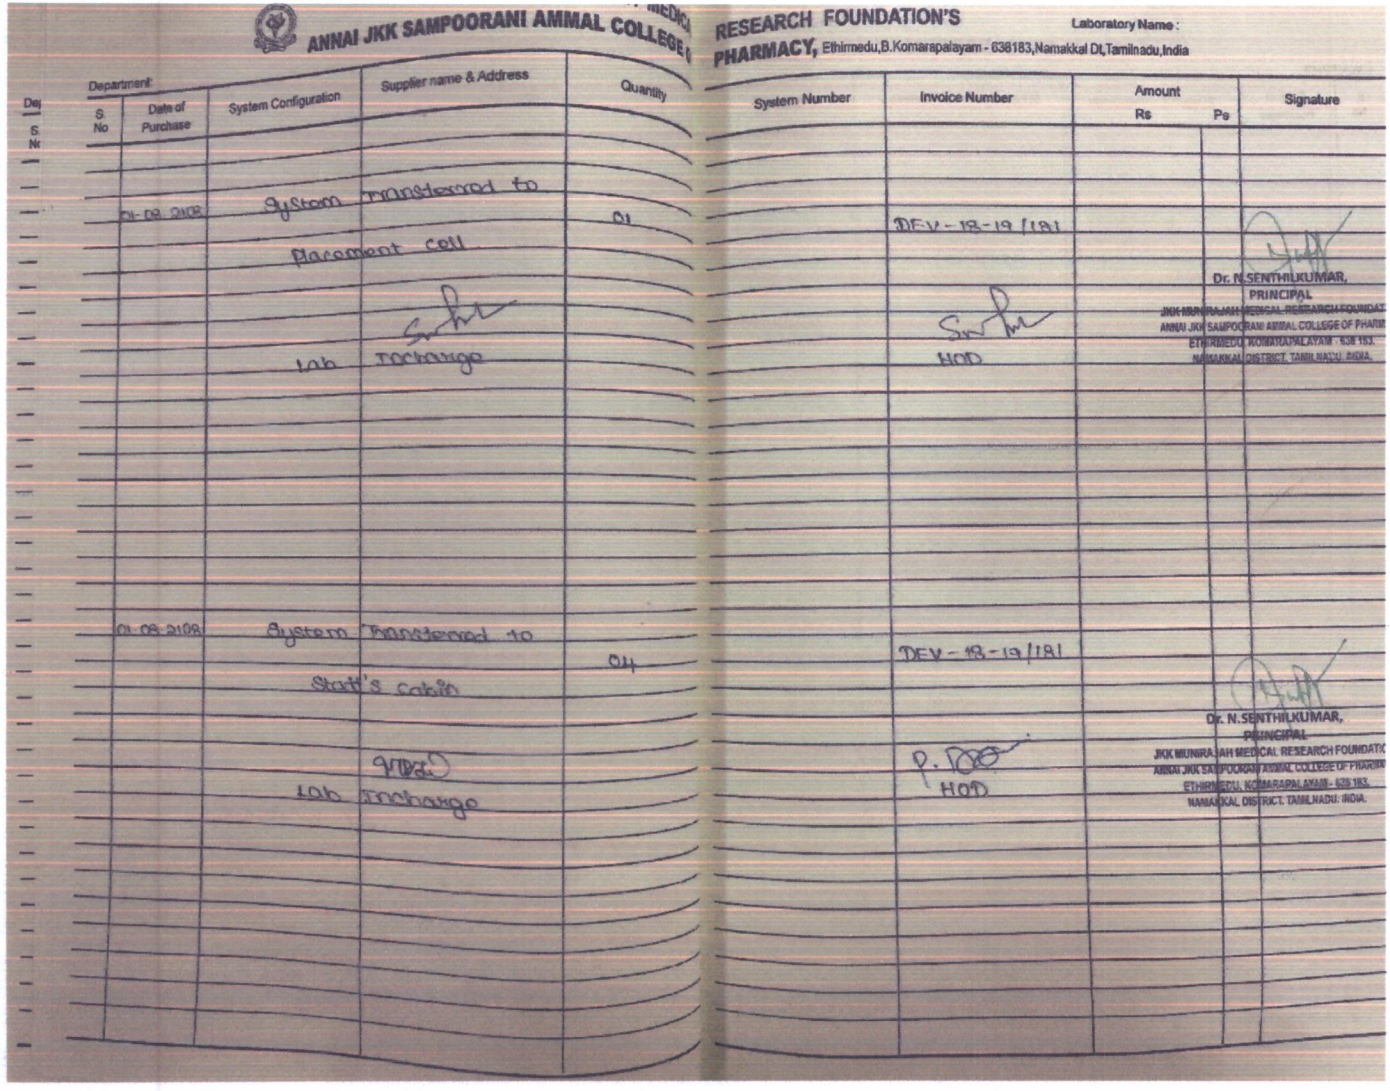 MEDICAL RESEARCH FOUNDATION'S
ANNAI JKK SAMPOORANI AMMAL COLLEGE OF PHARMACY, Ethirmedu,B.Komarapalayam - 638183,Namakkal Dt,Tamilnadu,India
Laboratory Name :
Department:
S. No
Date of Purchase
System Configuration
Supplier name & Address
Quantity
System Number
Invoice Number
Amount
Rs
Ps
Signature
01-08-2108
System Transferred to
01
DEV-18-19/181
Placement cell
Dr. N.SENTHILKUMAR,
PRINCIPAL
JKK MUNIRAJAH MEDICAL RESEARCH FOUNDAT
ANNAI JKK SAMPOORANI AMMAL COLLEGE OF PHARM
ETHIRMEDU, KOMARAPALAYAM - 638 183.
NAMAKKAL DISTRICT. TAMILNADU. INDIA.
Lab Incharge
HOD
01-08-2108
System Transferred to
04
DEV-18-19/181
Staff's cabin
Dr. N.SENTHILKUMAR,
PRINCIPAL
JKK MUNIRAJAH MEDICAL RESEARCH FOUNDATIO
ANNAI JKK SAMPOORANI AMMAL COLLEGE OF PHARMA
ETHIRMEDU, KOMARAPALAYAM - 638 183.
NAMAKKAL DISTRICT. TAMILNADU. INDIA.
Lab Incharge
HOD